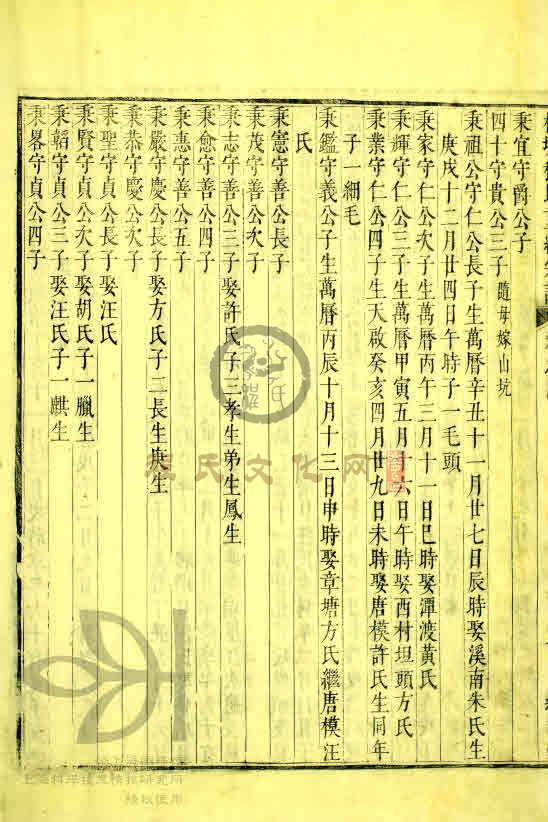 秉宜守爵公子
四十守貴公三子 隨母嫁山坑
秉祖公守仁公長子生萬曆辛丑十一月廿七日辰時娶溪南朱氏生
庚戌十二月廿四日午時子一毛頭
秉家守仁公次子生萬曆丙午三月十一日巳時娶潭渡黃氏
秉輝守仁公三子生萬曆甲寅五月十六日午時娶西村坦頭方氏
秉業守仁公四子生天啟癸亥四月廿九日未時娶唐模許氏生同年
子一細毛
秉鑑守義公子生萬曆丙辰十月十三日申時娶章塘方氏繼唐模汪
氏
秉憲守善公長子
秉茂守善公次子
秉志守善公三子娶許氏子三孝生弟生鳳生
秉愈守善公四子
秉惠守善公五子
秉嚴守慶公長子娶方氏子二長生庚生
秉恭守慶公次子
秉聖守貞公長子娶汪氏
秉賢守貞公次子娶胡氏子一臘生
秉韜守貞公三子娶汪氏子一麒生
秉畧守貞公四子
氏文化网